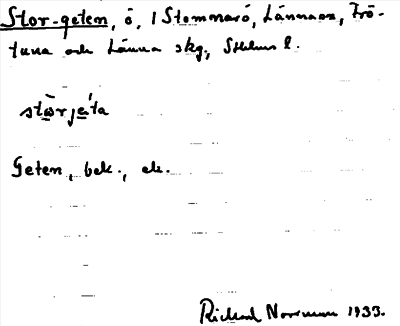 Stor-geten, ö, / Stommarö, Lännaön, Frö-
tuna och Länna skg, Sthlms l.
stòrje´ta
Geten, bek., ek.
Rickard Norrman 1933.